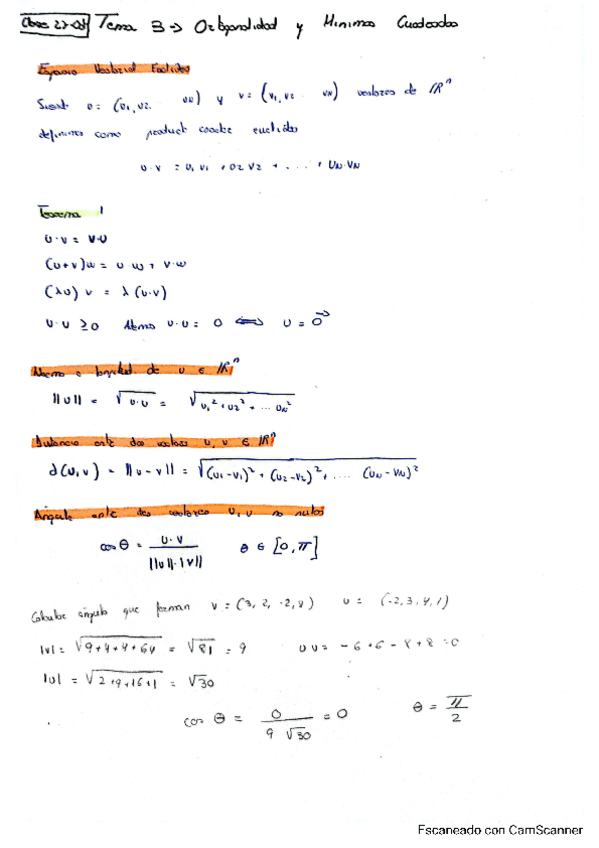 Clase 27-09 Tema 3 → Ortogonalidad y Minimos Cuadrados
Espacio Vectorial Euclideo
Sean u = (u1, u2 ... un) y v = (v1, v2 ... vn) vectores de ℝⁿ
definimos como producto escalar euclideo
u·v = u1v1 + u2v2 + .... + un·vn
Teorema 1
u·v = v·u
(u+v)w = u·w + v·w
(λu)v = λ(u·v)
u·u ≥ 0 Ademas u·u = 0 ⟺ u = 0⃗
Norma o longitud de u ∈ ℝⁿ
||u|| = √u·u = √u1² + u2² + ... un²
Distancia entre dos vectores u, v ∈ ℝⁿ
d(u,v) = ||u-v|| = √(u1-v1)² + (u2-v2)² + .... (un-vn)²
Angulo entre dos vectores u, v no nulos
cos θ = u·v / ||u||·|v|| θ ∈ [0, π]
Calcular ángulo que forman v = (3, 2, -2, 8) u = (-2, 3, 4, 1)
|v| = √9+4+4+64 = √81 = 9 u v = -6 + 6 - 8 + 8 = 0
|u| = √2+9+16+1 = √30
cos θ = 0 / 9 √30 = 0 θ = π / 2
Escaneado con CamScanner